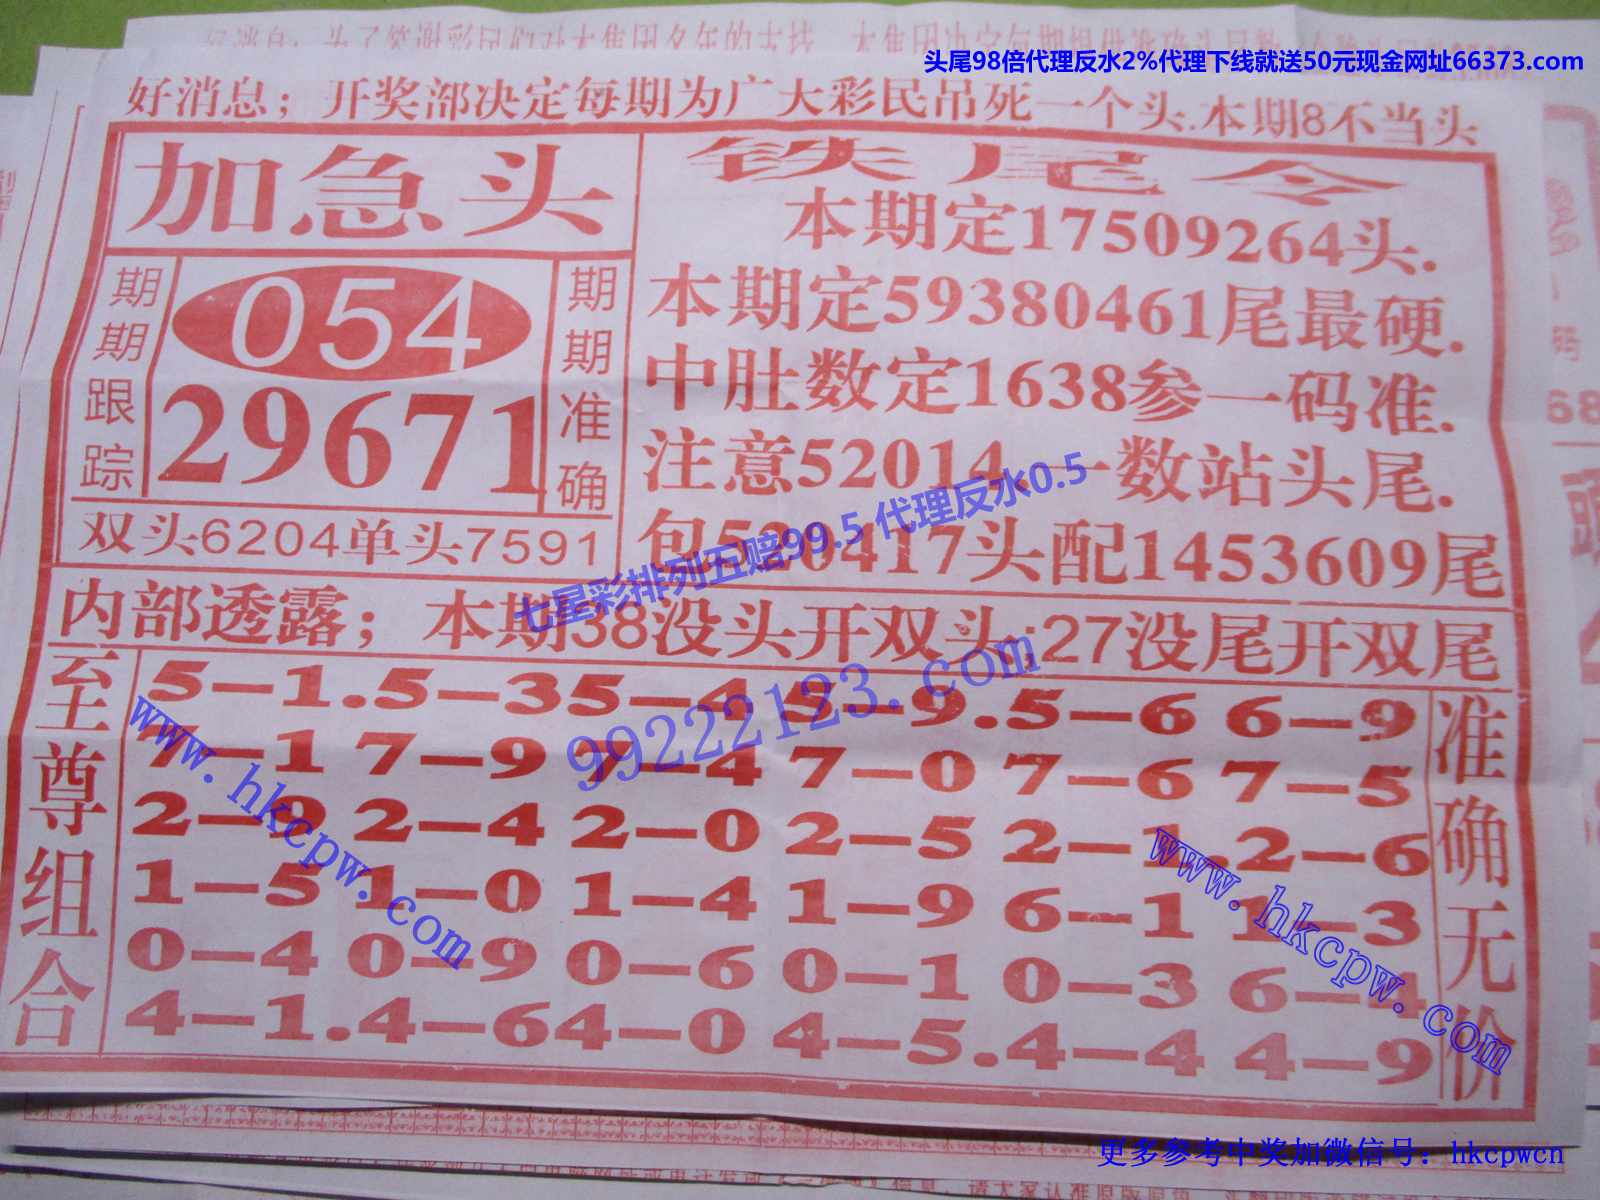 头尾98倍代理反水2%代理下线就送50元现金网址66373.com
好消息；开奖部决定每期为广大彩民吊死一个头.本期8不当头
加急头
期期跟踪
054
29671
期期准确
双头6204单头7591
铁尾令
本期定17509264头.
本期定59380461尾最硬.
中肚数定1638参一码准.
注意52014.一数站头尾.
包520417头配1453609尾
七星彩排列五赔99.5 代理反水0.5
内部透露；本期38没头开双头;27没尾开双尾
99222123.com
www.hkcpw.com
www.hkcpw.com
至尊组合
5—1.5—35—4 5—9.5—6 6—9
7—1 7—9 7—4 7—0 7—6 7—5
2—9 2—4 2—0 2—5 2—1.2—6
1—5 1—0 1—4 1—9 6—1 1—3
0—4 0—9 0—6 0—1 0—3 6—4
4—1.4—64—0 4—5.4—4 4—9
准确无价
更多参考中奖加微信号：hkcpwcn